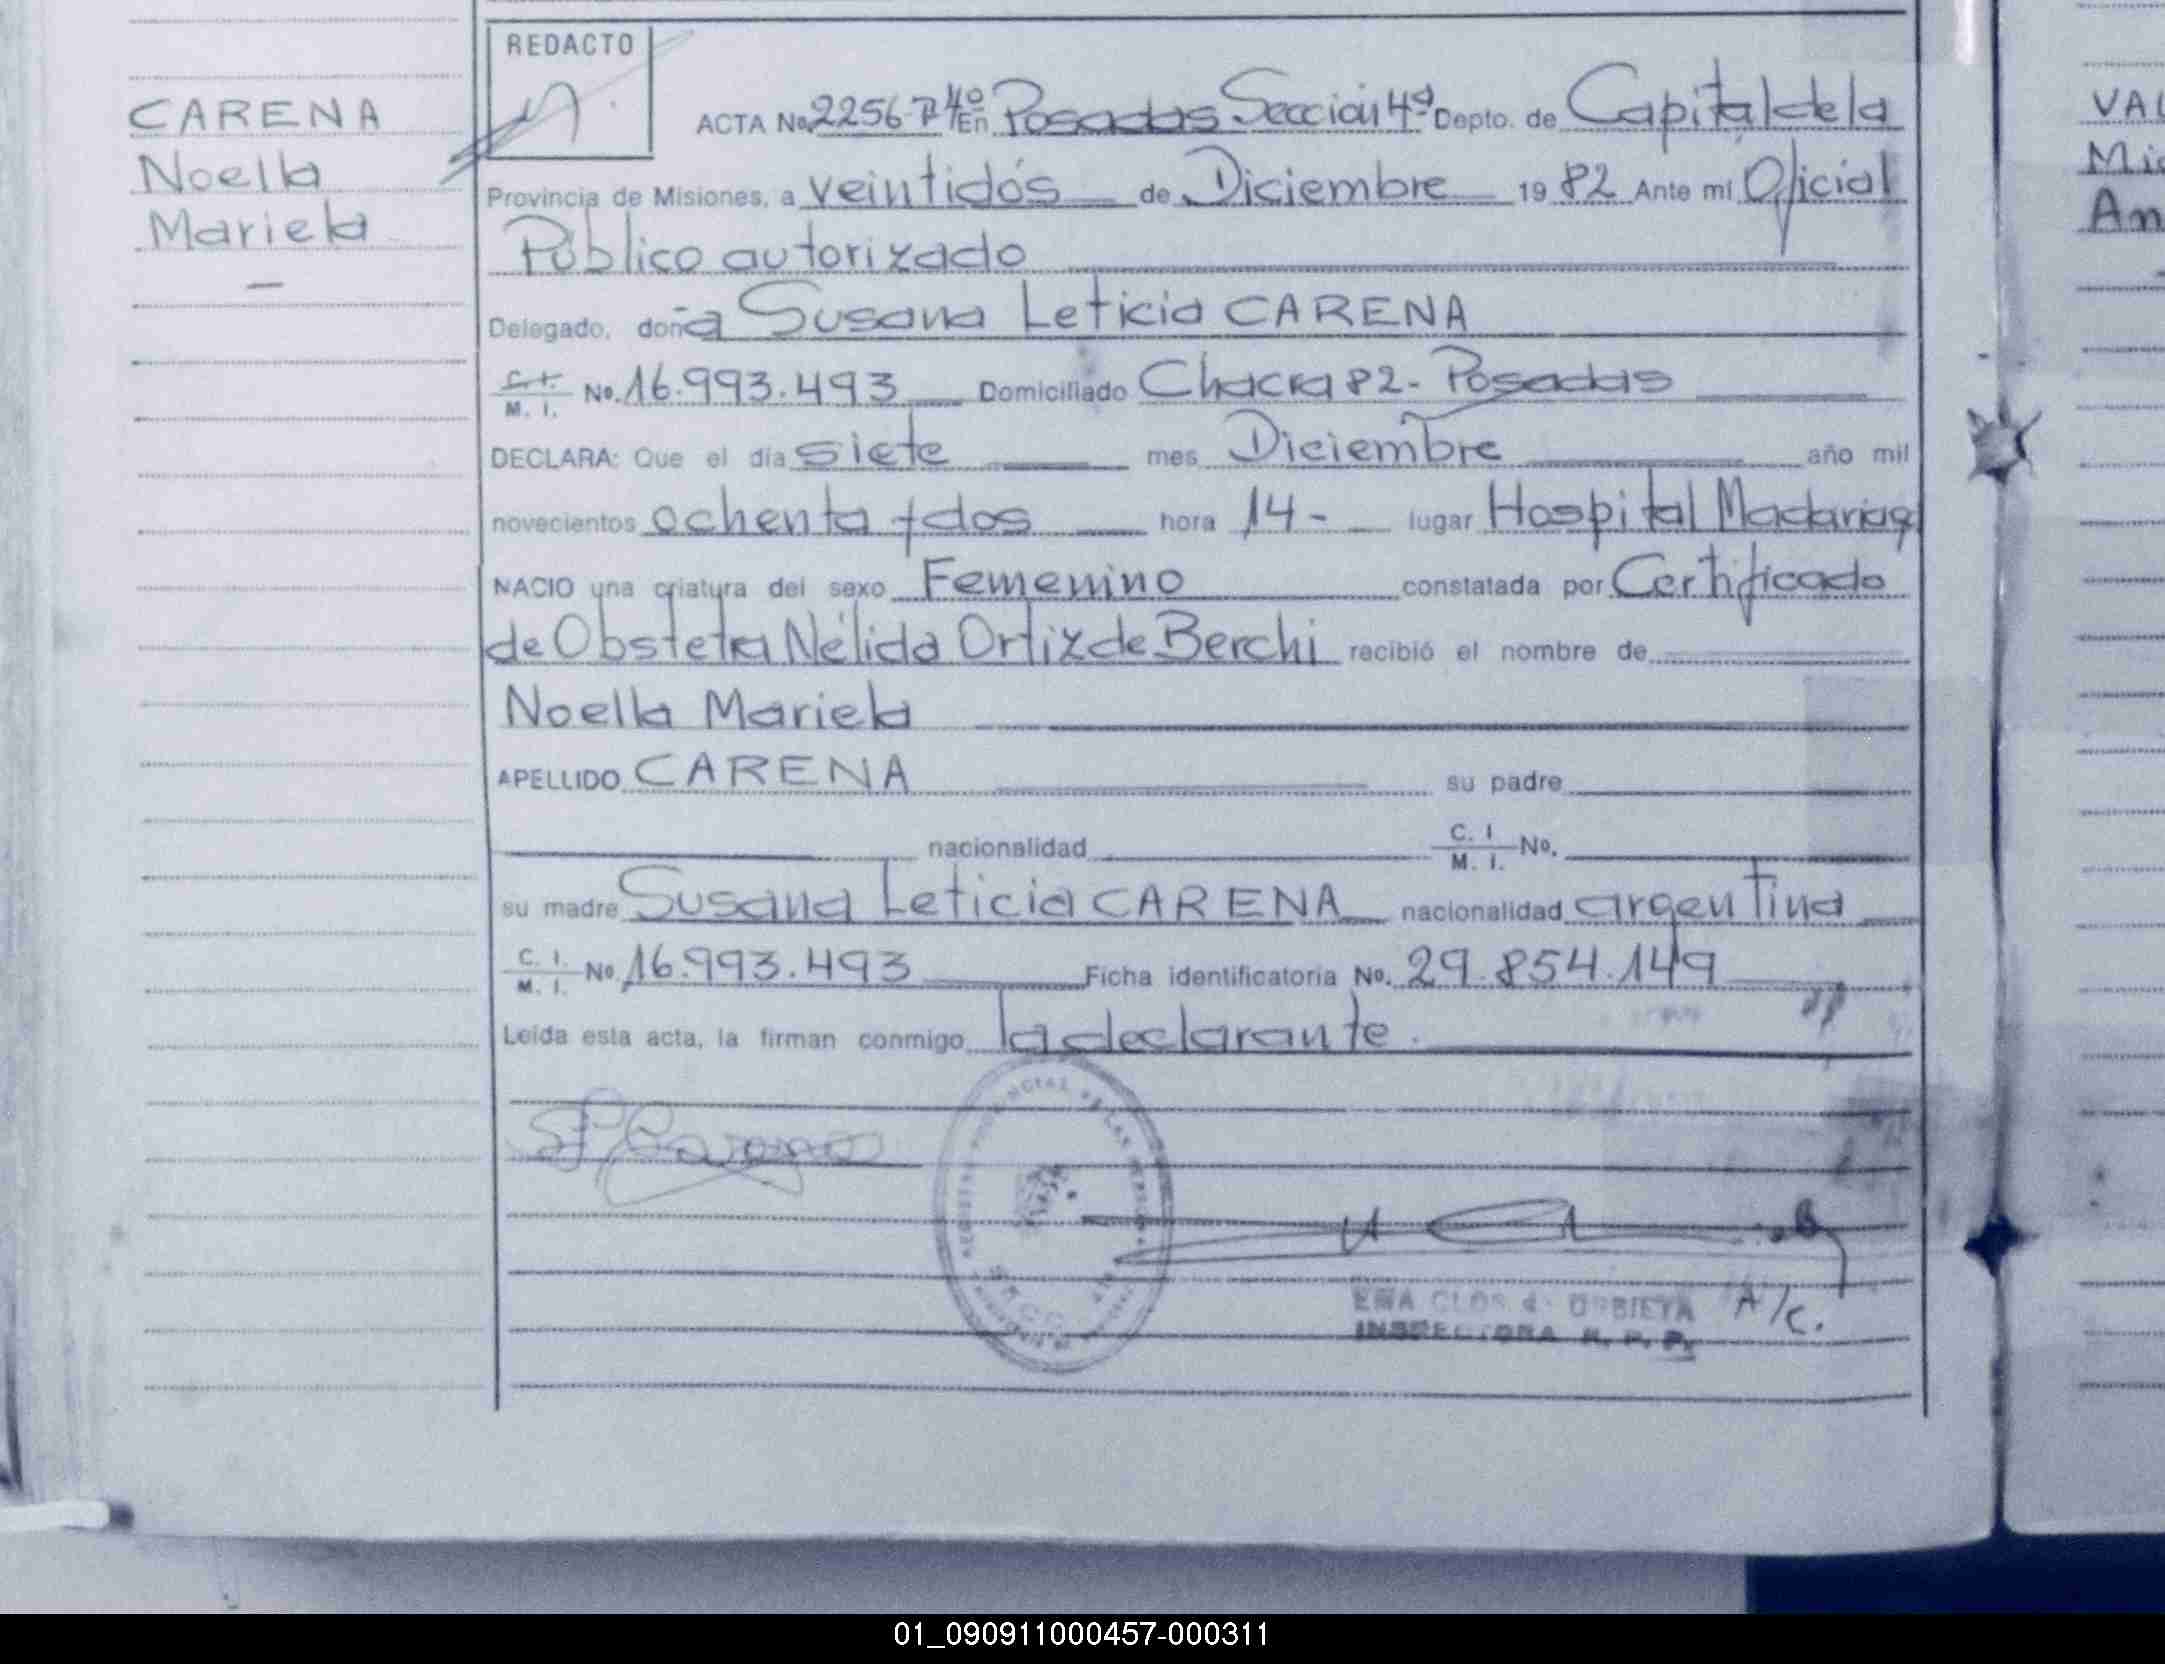 CARENA
Noella
Mariela
REDACTO
ACTA No. 2256 Tº 4º En Posadas Sección 4ª Depto. de Capital de la
Provincia de Misiones, a veintidós de Diciembre 1982 Ante mi Oficial
Público autorizado
Delegado, doña Susana Leticia CARENA
C. I. M. I. No. 16.993.493 Domiciliado Chacra 82 - Posadas
DECLARA: Que el día siete mes Diciembre año mil
novecientos ochenta y dos hora 14 - lugar Hospital Madariaga
NACIO una criatura del sexo Femenino constatada por Certificado
de Obsteta Nélida Ortiz de Berchi recibió el nombre de
Noella Mariela
APELLIDO CARENA su padre
nacionalidad C. I. M. I. No.
su madre Susana Leticia CARENA nacionalidad argentina
C. I. M. I. No. 16.993.493 Ficha identificatoria No. 29.854.149
Leída esta acta, la firman conmigo la declarante.
INSPECTORA R. P. P.
A/c.
VAL
Mi
An
01_090911000457-000311